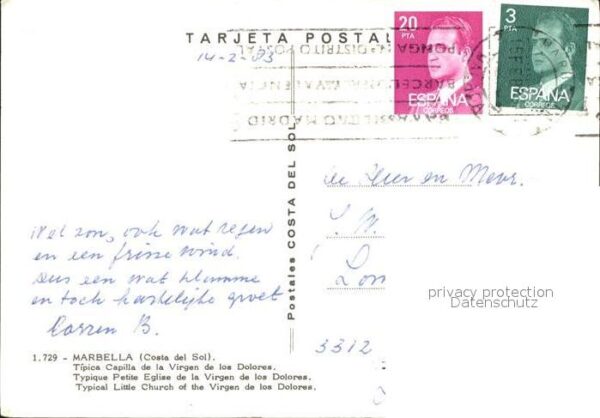 TARJETA POSTAL
14-2-83
20
PTA
ESPAÑA
CORREOS
3
PTA
ESPAÑA
CORREOS
PONGA Nº DISTRITO POSTAL
BARCELONA VALENCIA
SEVILLA MADRID
Postales COSTA DEL SOL
de Heer en Mevr.
Wel zon, ook wat regen
en een frisse wind.
Dus een wat klamme
en toch hartelijke groet
Corrien B.
3312
privacy protection
Datenschutz
1.729 - MARBELLA (Costa del Sol).
Típica Capilla de la Virgen de los Dolores.
Typique Petite Eglise de la Virgen de los Dolores.
Typical Little Church of the Virgen de los Dolores.